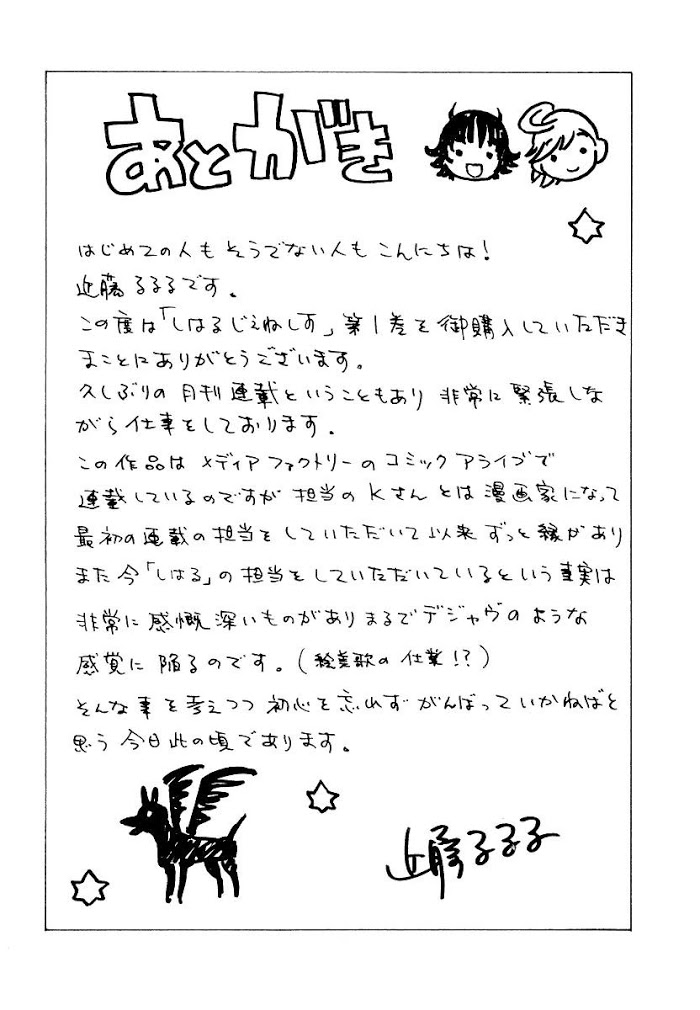 あとがき
はじめての人もそうでない人もこんにちは！
近藤るるるです。
この度は「しはるじぇねしす」第1巻を御購入していただき
まことにありがとうございます。
久しぶりの月刊連載ということもあり 非常に緊張しな
がら仕事をしております。
この作品はメディアファクトリーのコミックアライブで
連載しているのですが 担当のKさんとは漫画家になって
最初の連載の担当をしていただいて以来ずっと縁があり
また今「しはる」の担当をしていただいているという事実は
非常に感慨深いものがありまるでデジャヴのような
感覚に陥るのです。（絵美歌の仕業！？）
そんな事を考えつつ初心を忘れずがんばっていかねばと
思う今日此の頃であります。
近藤るるる